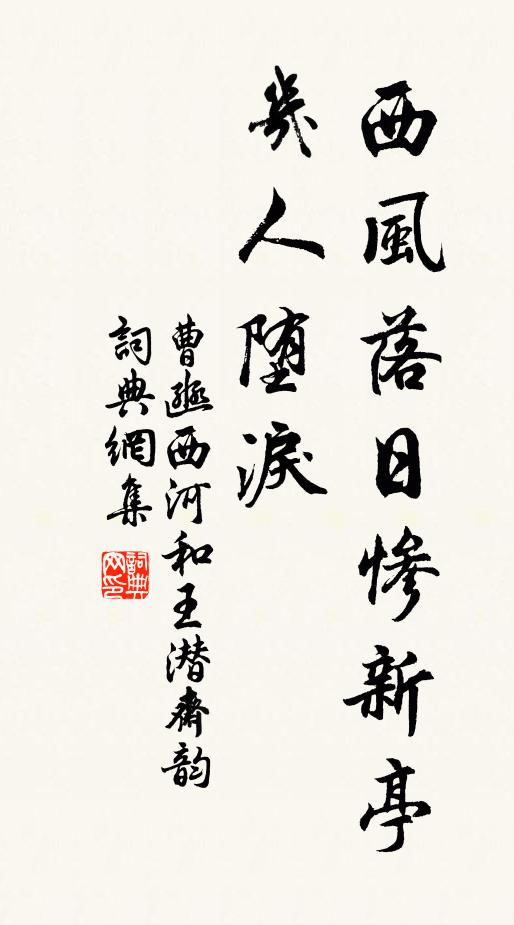 西風落日慘新亭
幾人堕淚
曹豳西河和王潜齋韵
詞典網集
詞典網印